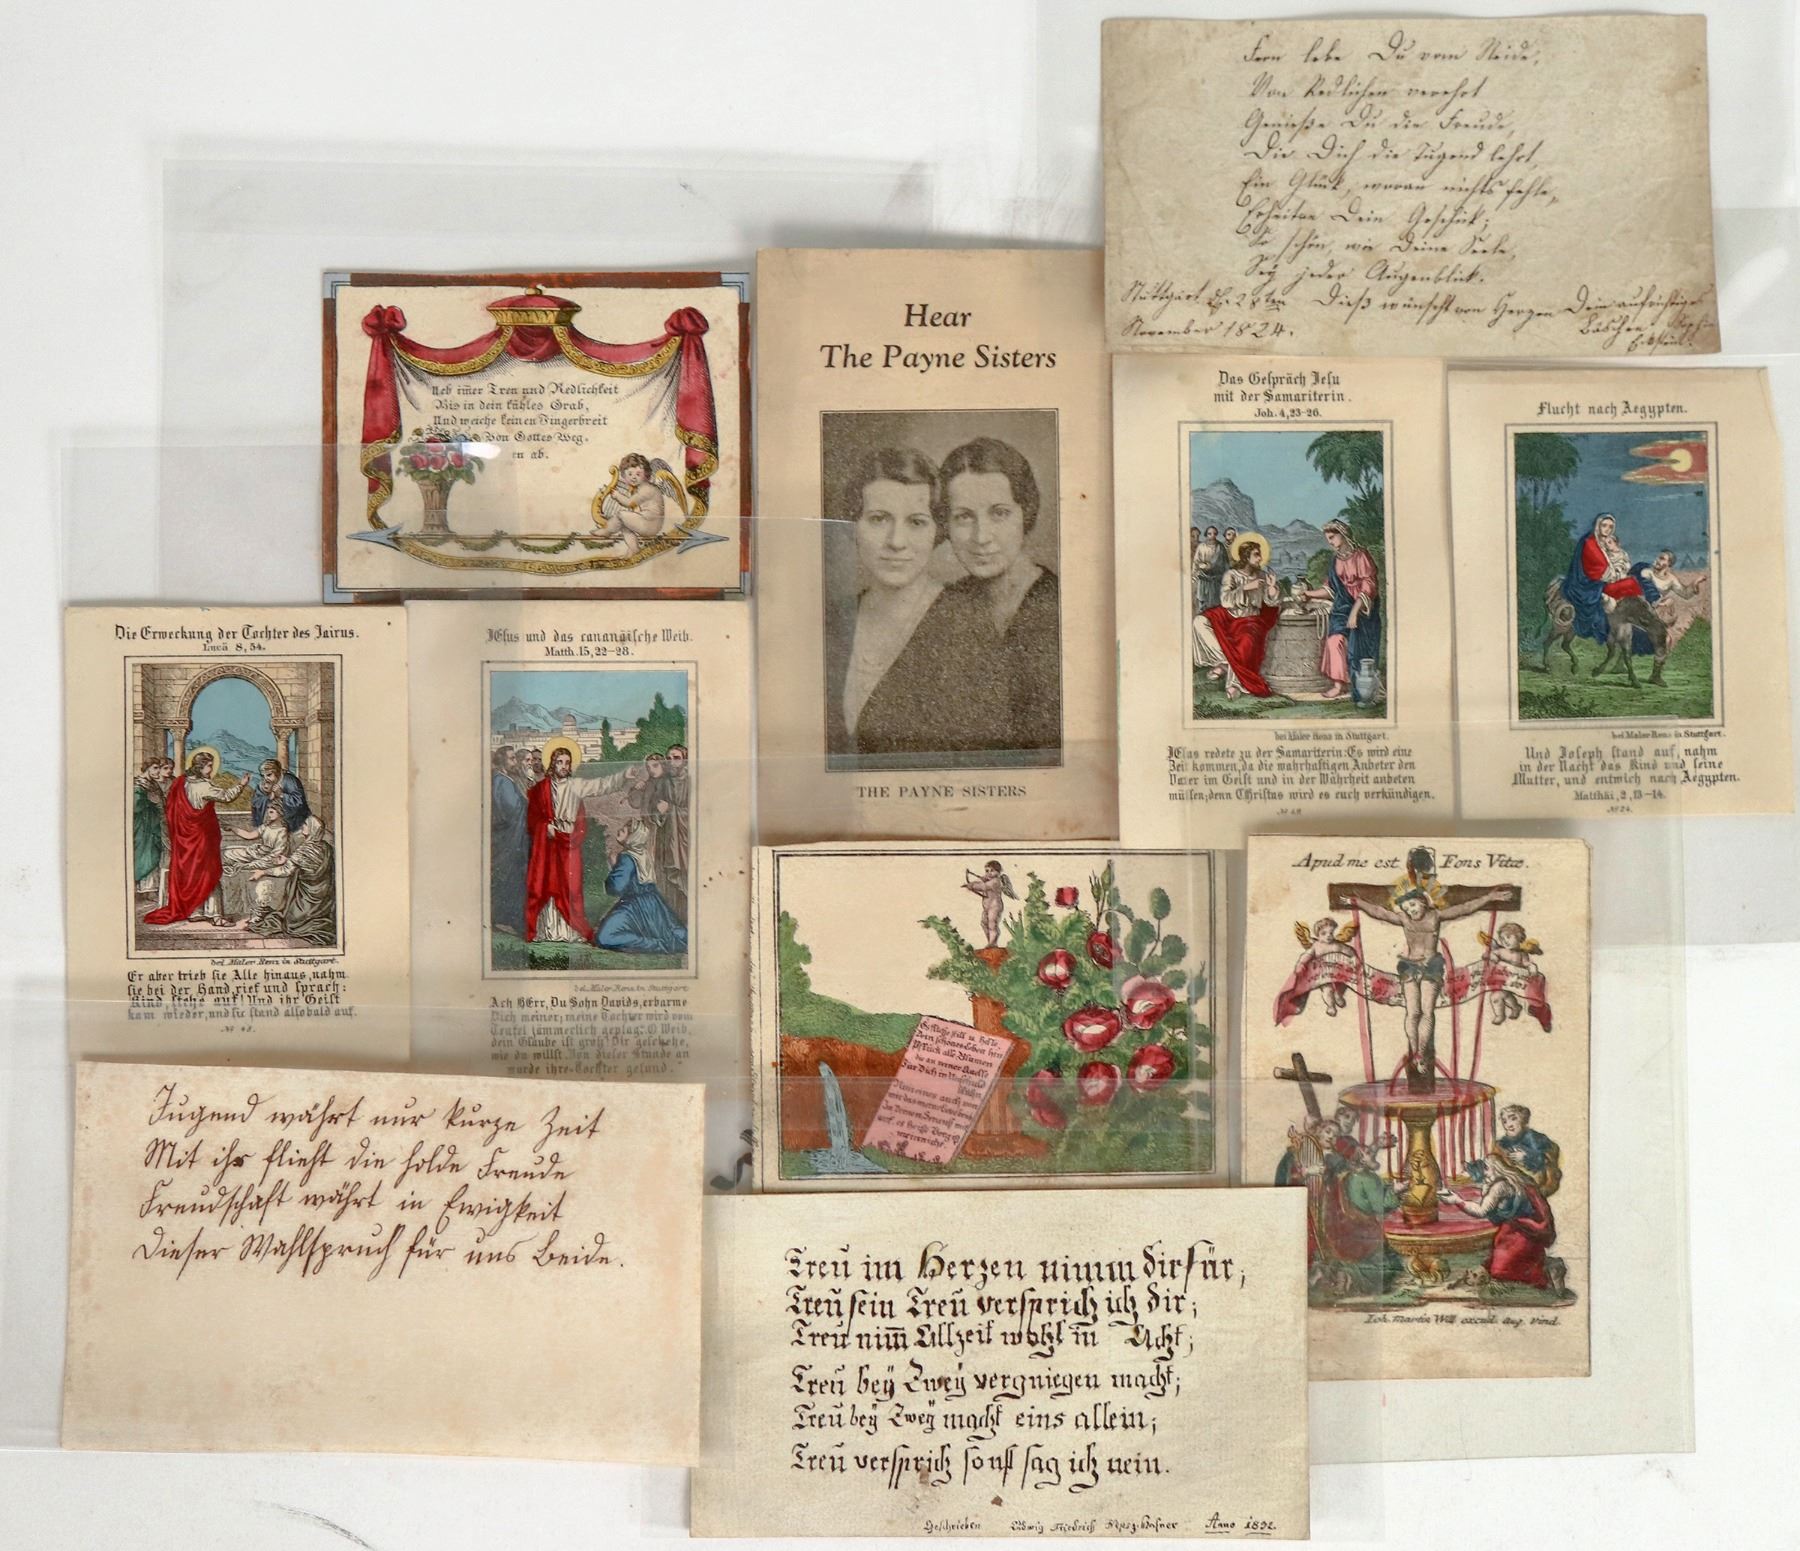 Fern lebe Du vom Neide,
Von Redlichen verehrt
Genieße Du die Freude,
Die Dich die Tugend lehrt,
Ein Glück, woran nichts fehle,
Erheitre Dein Geschick;
So schön, wie Deine Seele,
Sey jeder Augenblick.
Stuttgart d. 28ten Dieß wünscht von Herzen Dein aufrichtiges
November 1824. Bäschen
Ueb im̄er Treu und Redlichkeit
Bis in dein kühles Grab,
Und weiche keinen Fingerbreit
Von Gottes Weg.
en ab.
Hear
The Payne Sisters
THE PAYNE SISTERS
Das Gespräch Jesu
mit der Samariterin.
Joh. 4,23-26.
bei Maler Renz in Stuttgart.
JEsus redete zu der Samariterin: Es wird eine
Zeit kommen, da die wahrhaftigen Anbeter den
Vater im Geist und in der Wahrheit anbeten
müssen; denn CHristus wird es euch verkündigen.
Flucht nach Aegypten.
bei Maler Renz in Stuttgart.
Und Joseph stand auf, nahm
in der Nacht das Kind und seine
Mutter, und entwich nach Aegypten.
Matthäi, 2, 13-14.
No 24.
Die Erweckung der Tochter des Jairus.
Lucä 8, 54.
bei Maler Renz in Stuttgart.
Er aber trieb sie Alle hinaus, nahm
sie bei der Hand, rief und sprach:
Kind, stehe auf! Und ihr Geist
kam wieder, und sie stand alsobald auf.
No 43.
JEsus und das cananäische Weib.
Matth. 15, 22-28.
bei Maler Renz in Stuttgart
Ach HErr, Du Sohn Davids, erbarme
Dich meiner; meine Tochter wird vom
Teufel jämmerlich geplagt. O Weib,
dein Glaube ist groß! Dir geschehe,
wie du willst. Von dieser Stunde an
wurde ihre Tochter gesund.
Es fliesse still u. helle
Dein schönes Leben hin
Pflück alle Blumen
die an einer Quelle
Für Dich in Unschuld
blühn
Apud me est Fons Vitæ.
Joh. Martin Will excud. aug. vind.
Jugend währt nur kurze Zeit
Mit ihr flieht die holde Freude
Freudschaft währt in Ewigkeit
Dieser Wahlspruch für uns Beide.
Treu im Herzen nimm dir für;
Treu sein Treu versprich ich dir;
Treu nim̄ Allzeit wohl in Acht;
Treu bey Zwey vergniegen macht;
Treu bey Zwey macht eins allein;
Treu versprich sonst sag ich nein.
Geschrieben Ludwig Friedrich Anno 1832.